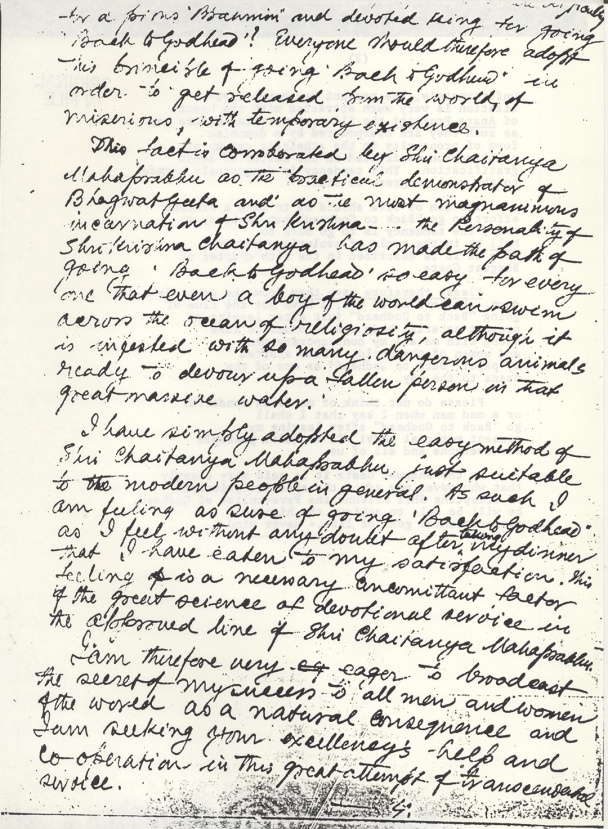 for a pious 'Brahmin' and devoted being for going
'Back to Godhead'? Everyone should therefore adopt
this principle of going 'Back to Godhead' in
order to get released from the world, of
miserious, with temporary existence.
This fact is corroborated by Shri Chaitanya
Mahaprabhu as the practical demonstrator of
Bhagwat Geeta and as the most magnanimous
incarnation of Shri Krishna... the Personality of
Shri Krishna Chaitanya has made the path of
going 'Back to Godhead' so easy for every
one that even a boy of the world can swim
across the ocean of religiosity, although it
is ingested with so many dangerous animals
ready to devour up a fallen person in that
great massive water.
I have simply adopted the easy method of
Shri Chaitanya Mahaprabhu, just suitable
to the modern people in general. As such I
am feeling as sure of going 'Back to Godhead'
as I feel without any doubt after taking my dinner
that I have eaten to my satisfaction. This
feeling is a necessary concomittant factor
of the great science of devotional service in
the approved line of Shri Chaitanya Mahaprabhu.
I am therefore very eager to broadcast
the secret of my success to all men and women
of the world as a natural consequence and
I am seeking your excellency's help and
co-operation in this great attempt of transcendental
service.